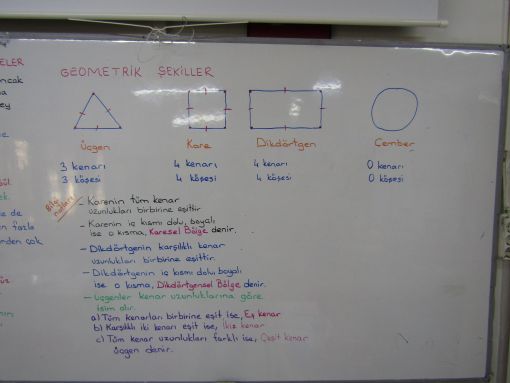 GEOMETRİK ŞEKİLLER
Üçgen Kare Dikdörtgen Çember
3 kenarı 4 kenarı 4 kenarı 0 kenarı
3 köşesi 4 köşesi 4 köşesi 0 köşesi
Bilgi notları
- Karenin tüm kenar
uzunlukları birbirine eşittir
- Karenin iç kısmı dolu, boyalı
ise o kısma, Karesel Bölge denir.
- Dikdörtgenin karşılıklı kenar
uzunlukları birbirine eşittir.
- Dikdörtgenin iç kısmı dolu, boyalı
ise o kısma, Dikdörtgensel Bölge denir.
- Üçgenler kenar uzunluklarına göre
isim alır.
a) Tüm kenarları birbirine eşit ise, Eş kenar
b) Karşılıklı iki kenarı eşit ise, İkiz kenar
c) Tüm kenar uzunlukları farklı ise, Çeşit kenar
üçgen denir.